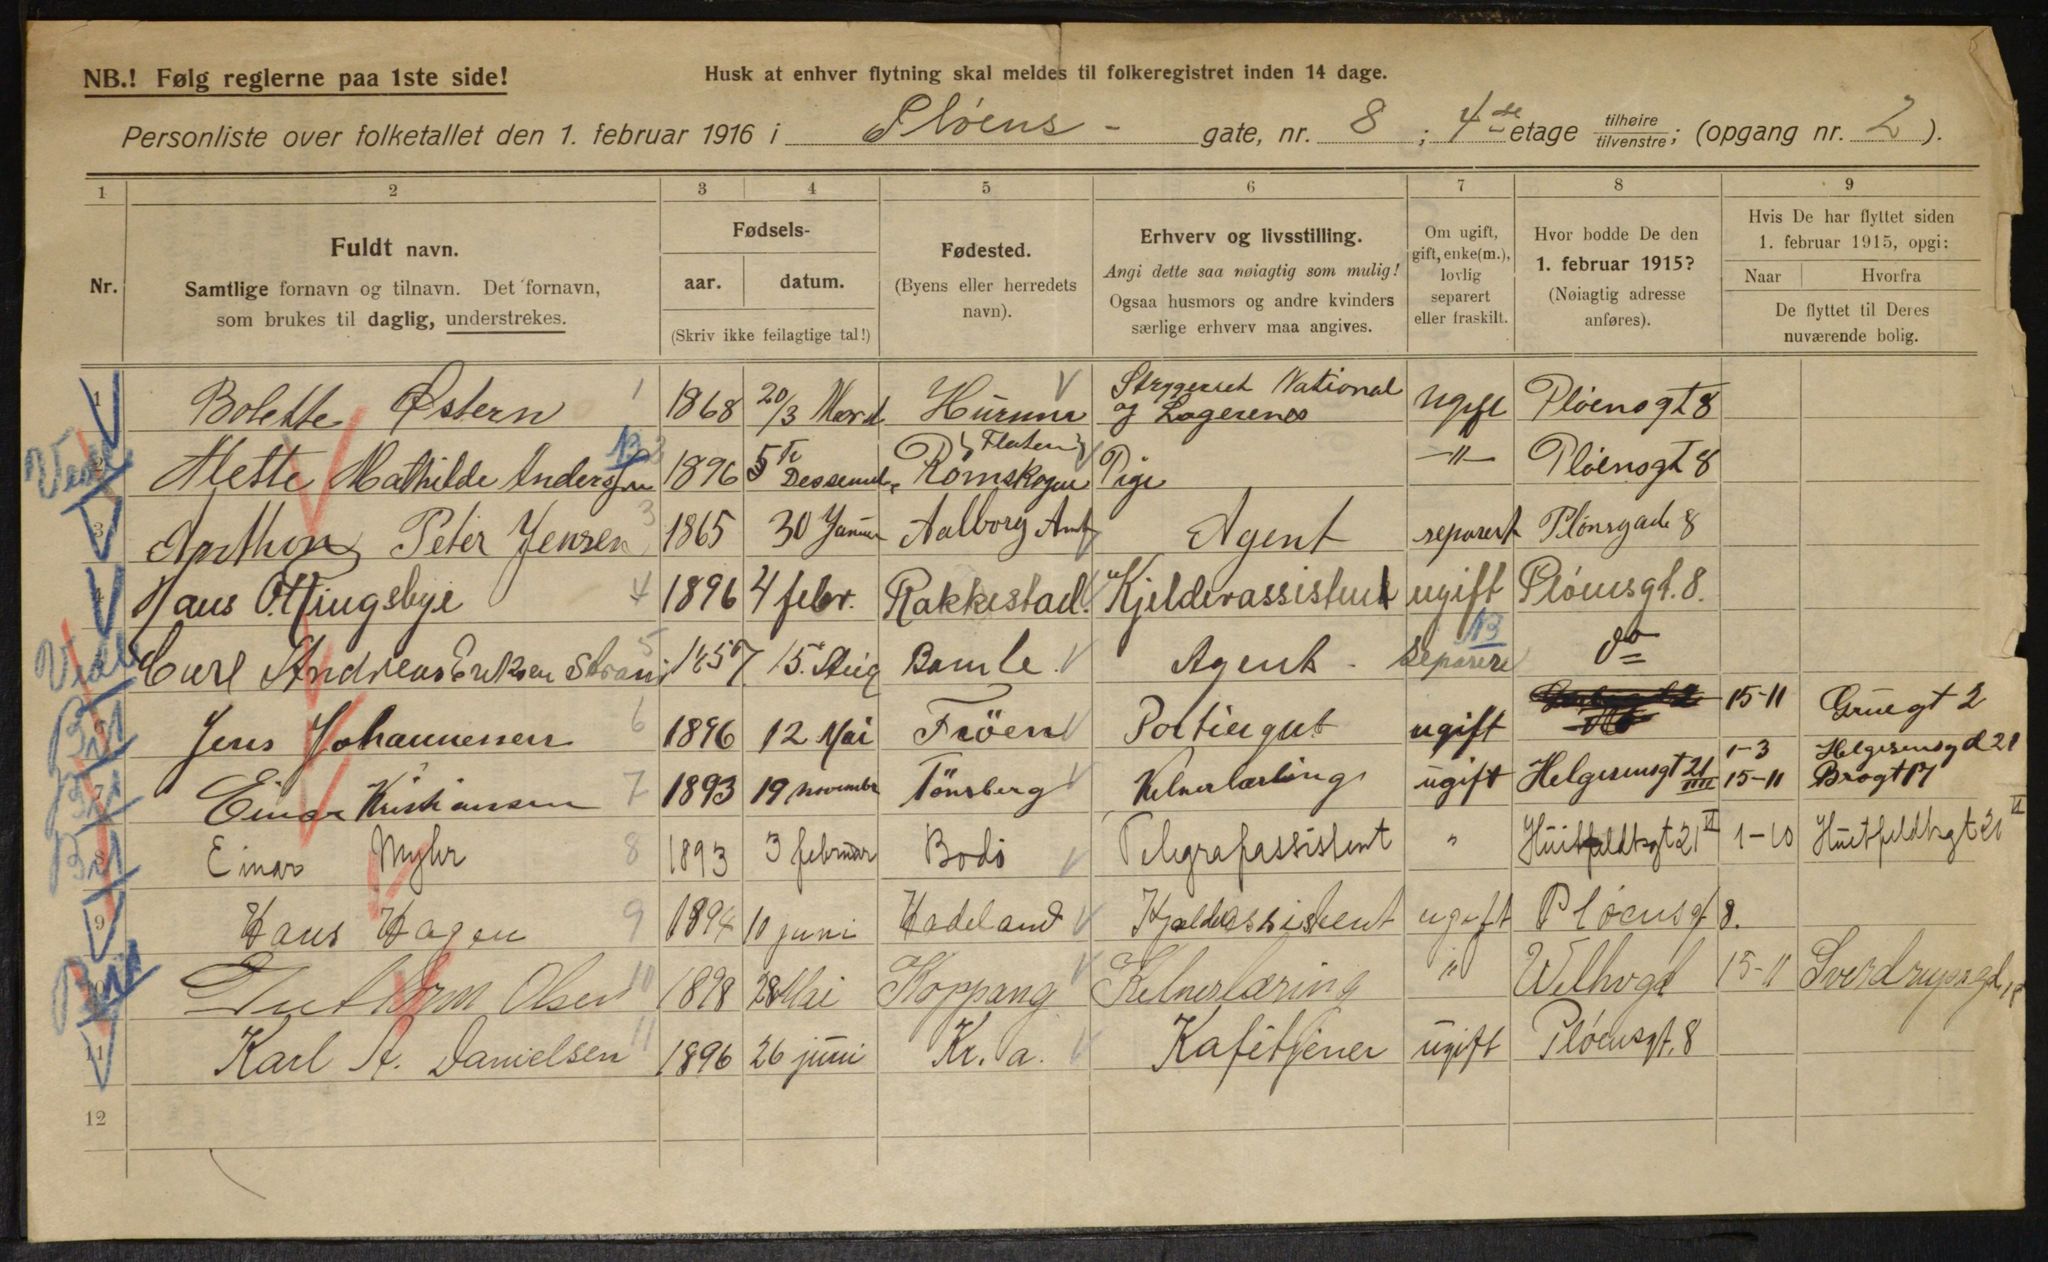 NB.! Følg reglerne paa 1ste side!
Husk at enhver flytning skal meldes til folkeregistret inden 14 dage.
Personliste over folketallet den 1. februar 1916 i Pløens - gate, nr. 8 ; 4de etage tilhøire/tilvenstre; (opgang nr. 2 ).
1 2 3 4 5 6 7 8 9
Nr.
Fuldt navn.
Samtlige fornavn og tilnavn. Det fornavn,
som brukes til daglig, understrekes.
Fødsels-
aar. datum.
(Skriv ikke feilagtige tal!)
Fødested.
(Byens eller herredets
navn).
Erhverv og livsstilling.
Angi dette saa nøiagtig som mulig!
Ogsaa husmors og andre kvinders
særlige erhverv maa angives.
Om ugift,
gift, enke(m.),
lovlig
separert
eller fraskilt.
Hvor bodde De den
1. februar 1915?
(Nøiagtig adresse
anføres).
Hvis De har flyttet siden
1. februar 1915, opgi:
Naar Hvorfra
De flyttet til Deres
nuværende bolig.
1 Bolette Østern 1 1868 20/3 Hurum National og ugift Pløensgt 8
2 Mette Mathilde Andersen 1896 5 Römskogen Flaten Pige -"- Pløensgt 8
3 Anthon Peter Jensen 3 1865 30 Januar Aalborg Amt Agent separert Plönsgade 8
4 Hans O. Kingsbye 4 1896 4 febr. Rakkestad. Kjelderassistent ugift Pløensgt. 8.
Carl Andreas Eriksen 5 1857 15. Aug Bamle Agent - separert do
6 Jens Johannessen 6 1896 12 Mai Fröen Portiergut ugift 15-11 Grüegt 2
7 Einar Kristiansen 7 1893 19 november Tönsberg Kelnerlærling ugift Helgesensgt 21 IIII 1-3 Helgesensgd 21
15-11 Brogt 17
8 Einar Myhr 8 1893 3 februar Bodö Telegrafassistent " Huitfeldtsgt 21 II 1-10 Huitfeldtsgt 21 II
9 Hans Hagen 9 1894 10 juni Hadeland Kjelderassistent ugift Pløensgt 8.
Olsen 10 1898 28 Mai Koppang Kelnerlæring " 15-11
11 Karl A. Danielsen 11 1896 26 juni Kr. a. Kafétjener ugift Pløensgt. 8
12